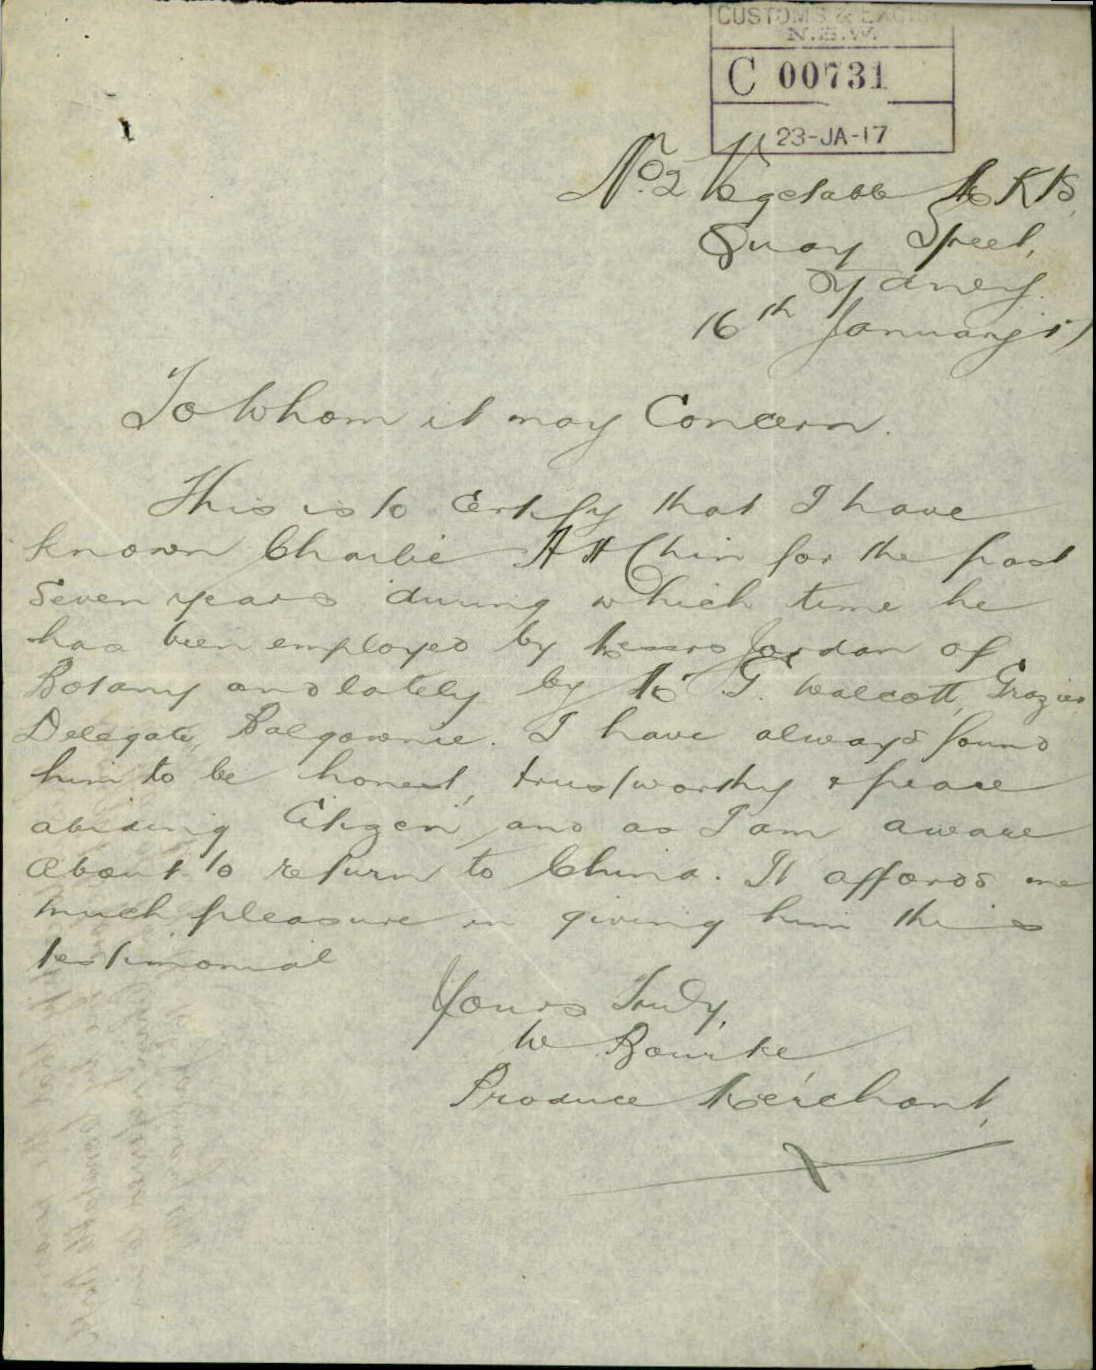 CUSTOMS & EXCISE
N.S.W.
C 00731
23-JA-17
No. 2 Vegetable Mkts,
Quay Street,
Sydney.
16th January 17
To Whom it may Concern.
This is to Certify that I have
known Charlie Ah Chin for the past
Seven years during which time he
has been employed by Messrs Jordan of
Botany and lately by Mr G. Walcott, Grazier
Delegate, Balgownie. I have always found
him to be honest, trustworthy & peace
abiding Citizen, and as I am aware
about to return to China. It affords me
much pleasure in giving him this
testimonial
Yours Truly,
W Bourke
Produce Merchant,